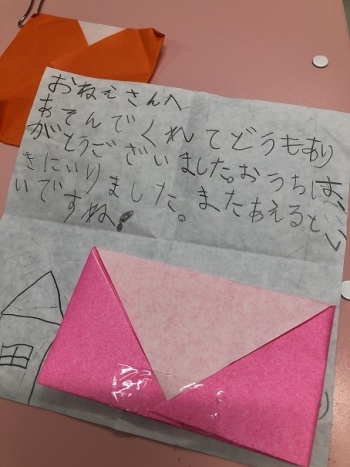 おねえさんへ
あそんでくれてどうもあり
がとうございました。おうちは、
きにいりました。またあえるとい
いですね!